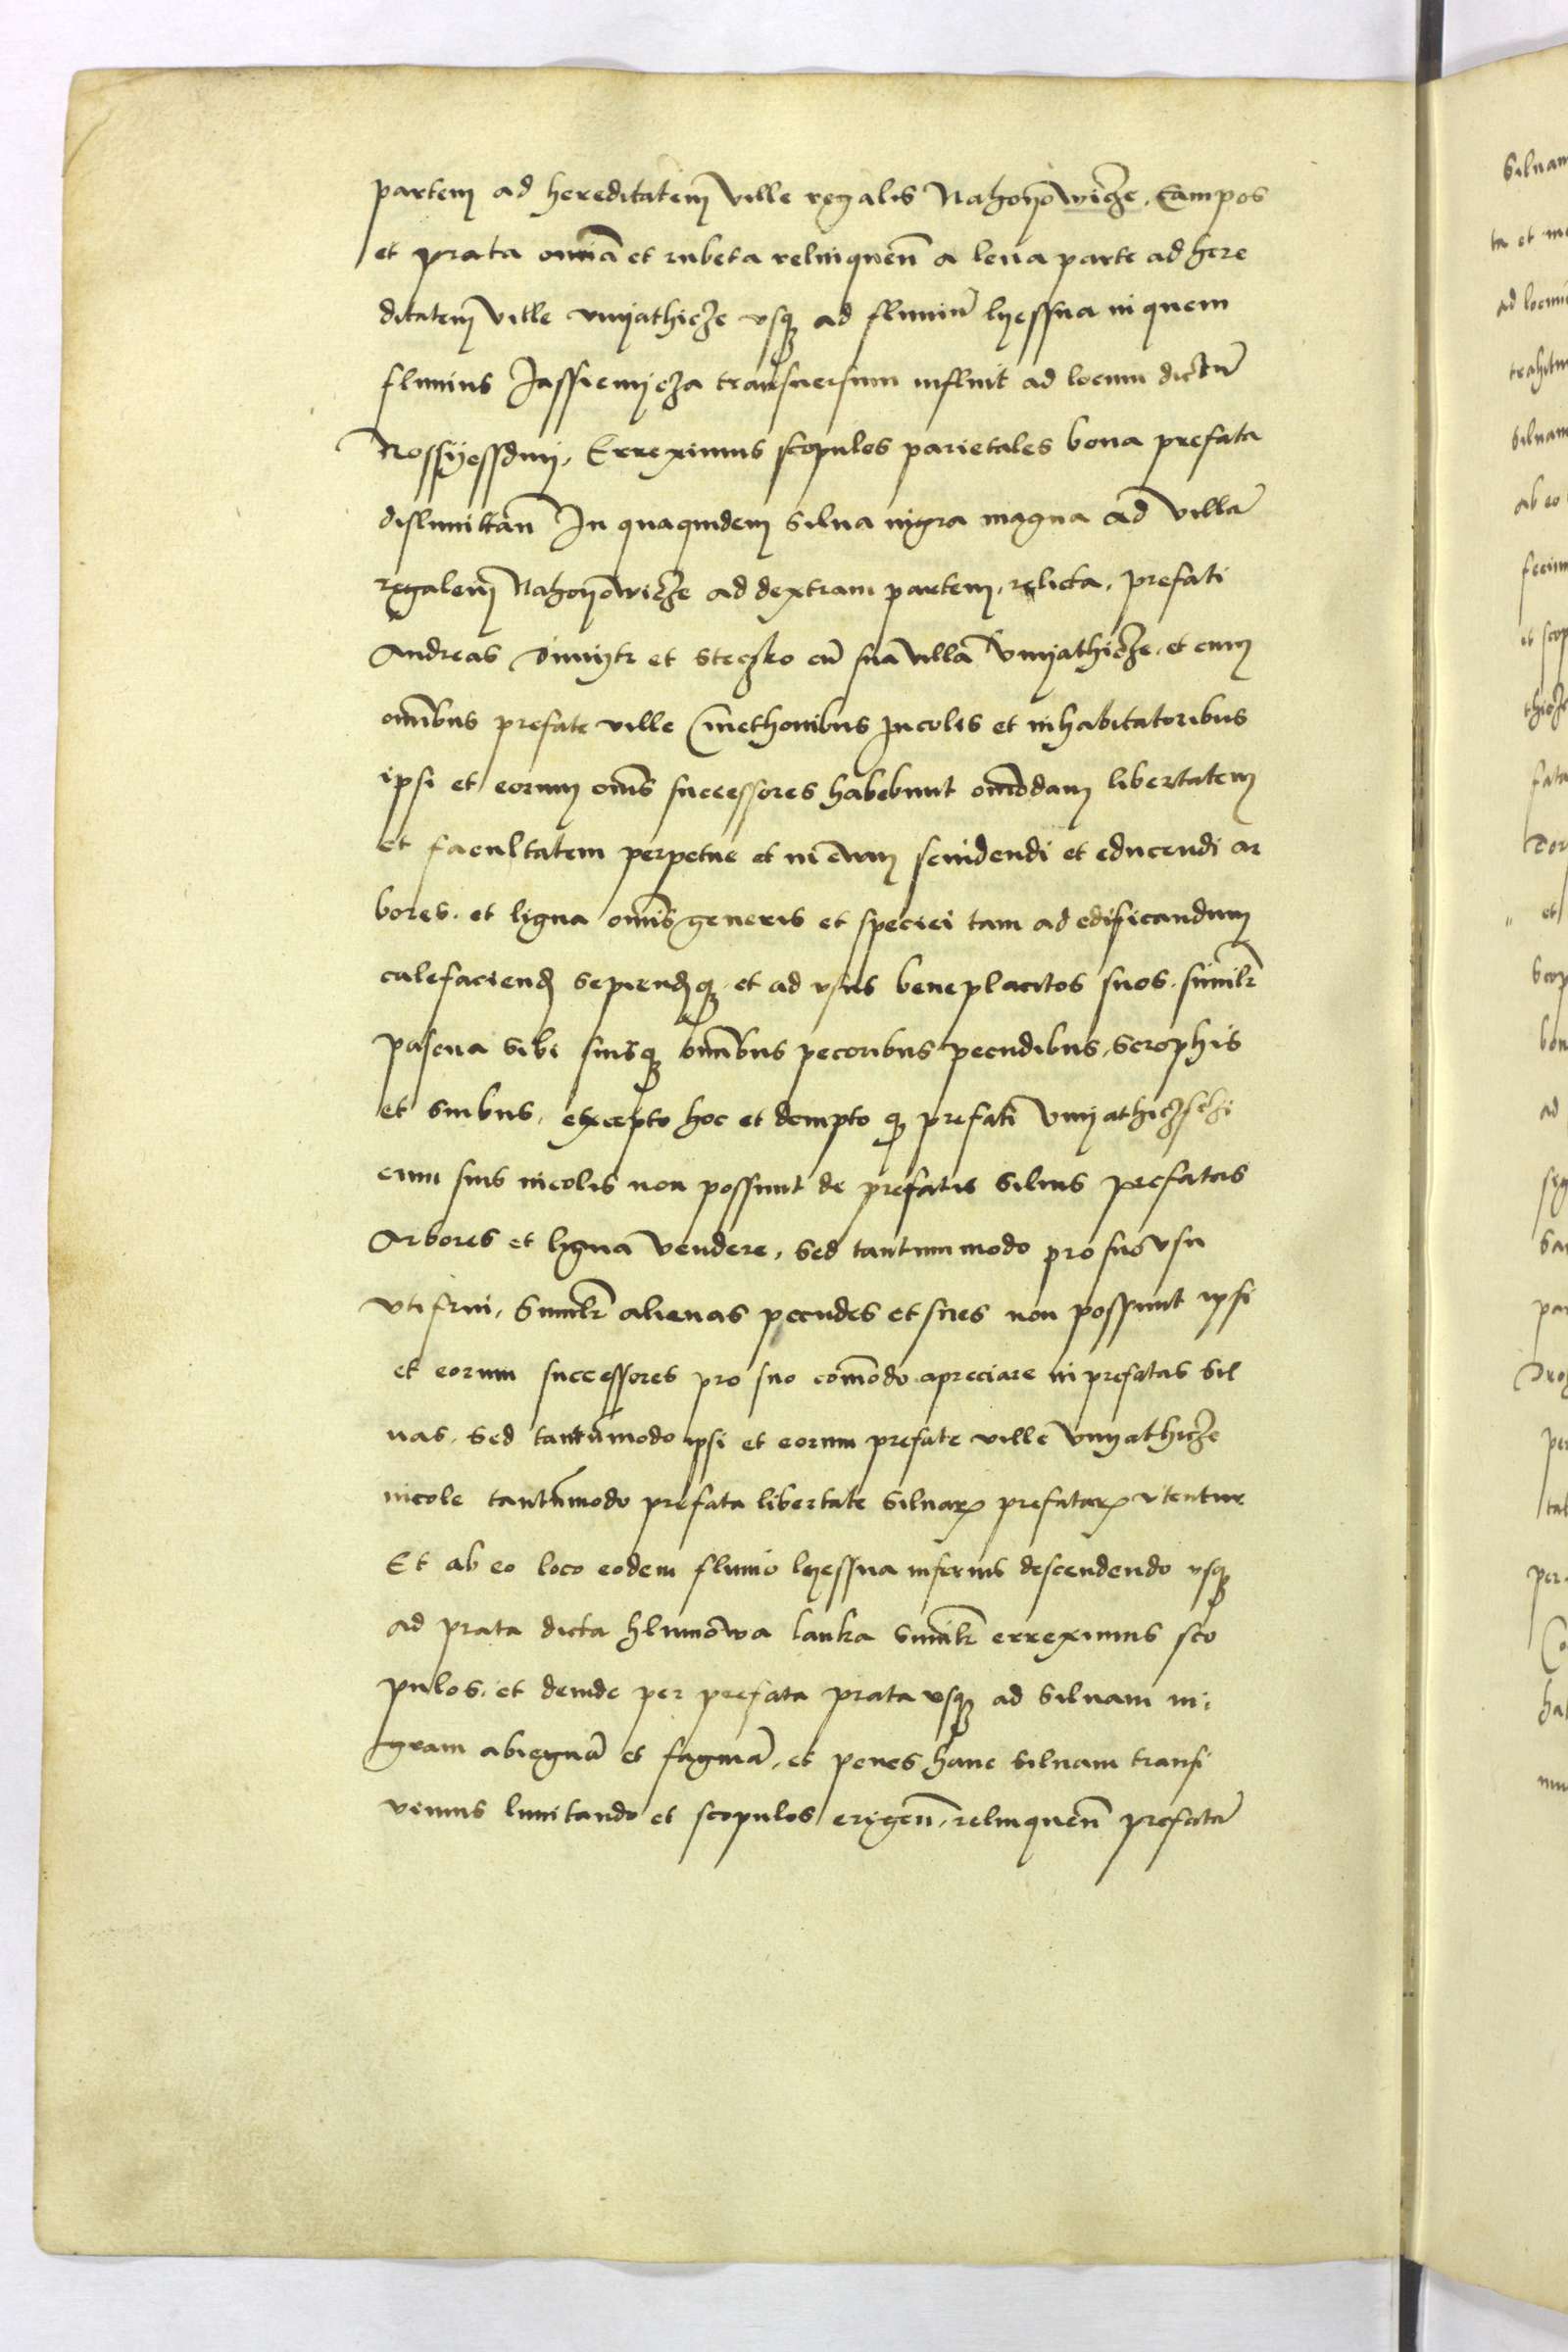 partem ad hereditatem ville regalis Nahoÿowicze, Campos
et prata om̄ia et rubeta relinquen̄ a leua parte ad here
ditatem ville vnijathicze vsq; ad fluuiū lyessna in quem
fluuius Jassienijcza transuersum influit ad locum dictū
Rossÿessdnij, Erreximus scopulos parietales bona prefata
dislimitan̄ In quaquidem silua nigra magna ad villā
regalem Nahoÿowicze ad dextram partem, relicta, prefati
Andreas Dimijtr et Steczko cū sua villa vnijathicze, et cum
om̄ibus prefate ville Cmethonibus Incolis et inhabitatoribus
ipsi et eorum om̄s successores habebunt om̄odam libertatem
et facultatem perpetue et in ewum scindendi et educendi ar
bores, et ligna om̄is generis et speciei tam ad edificandum
calefaciend sepiendq; et ad vsus beneplacitos suos, similr̄
pascua sibi suisq; om̄ibus pecoribus pecudibus, scrophis
et suibus, excepto hoc et dempto q prefati vnijathiczschi
cum suis incolis non possunt de prefatis siluis prefatas
Arbores et ligna vendere, sed tantummodo pro suo vsu
vti frui, Similr̄ alienas pecudes et sues non possunt ipsi
et eorum successores pro suo com̄odo apreciare in prefatas sil
uas, sed tantūmodo ipsi et eorum prefate ville vnijathicze
incole tantūmodo prefata libertate siluaꝝ prefataꝝ vtentur
Et ab eo loco eodem fluuio lyessna inferius descendendo vsq;
ad prata dicta hlumowa lanka similr̄ erreximus sco
pulos, et deinde per prefata prata vsq; ad siluam ni
gram abiegnā et faginā, et penes hanc siluam transi
uimus limitando et scopulos erigen̄, relinquen̄ prefatā